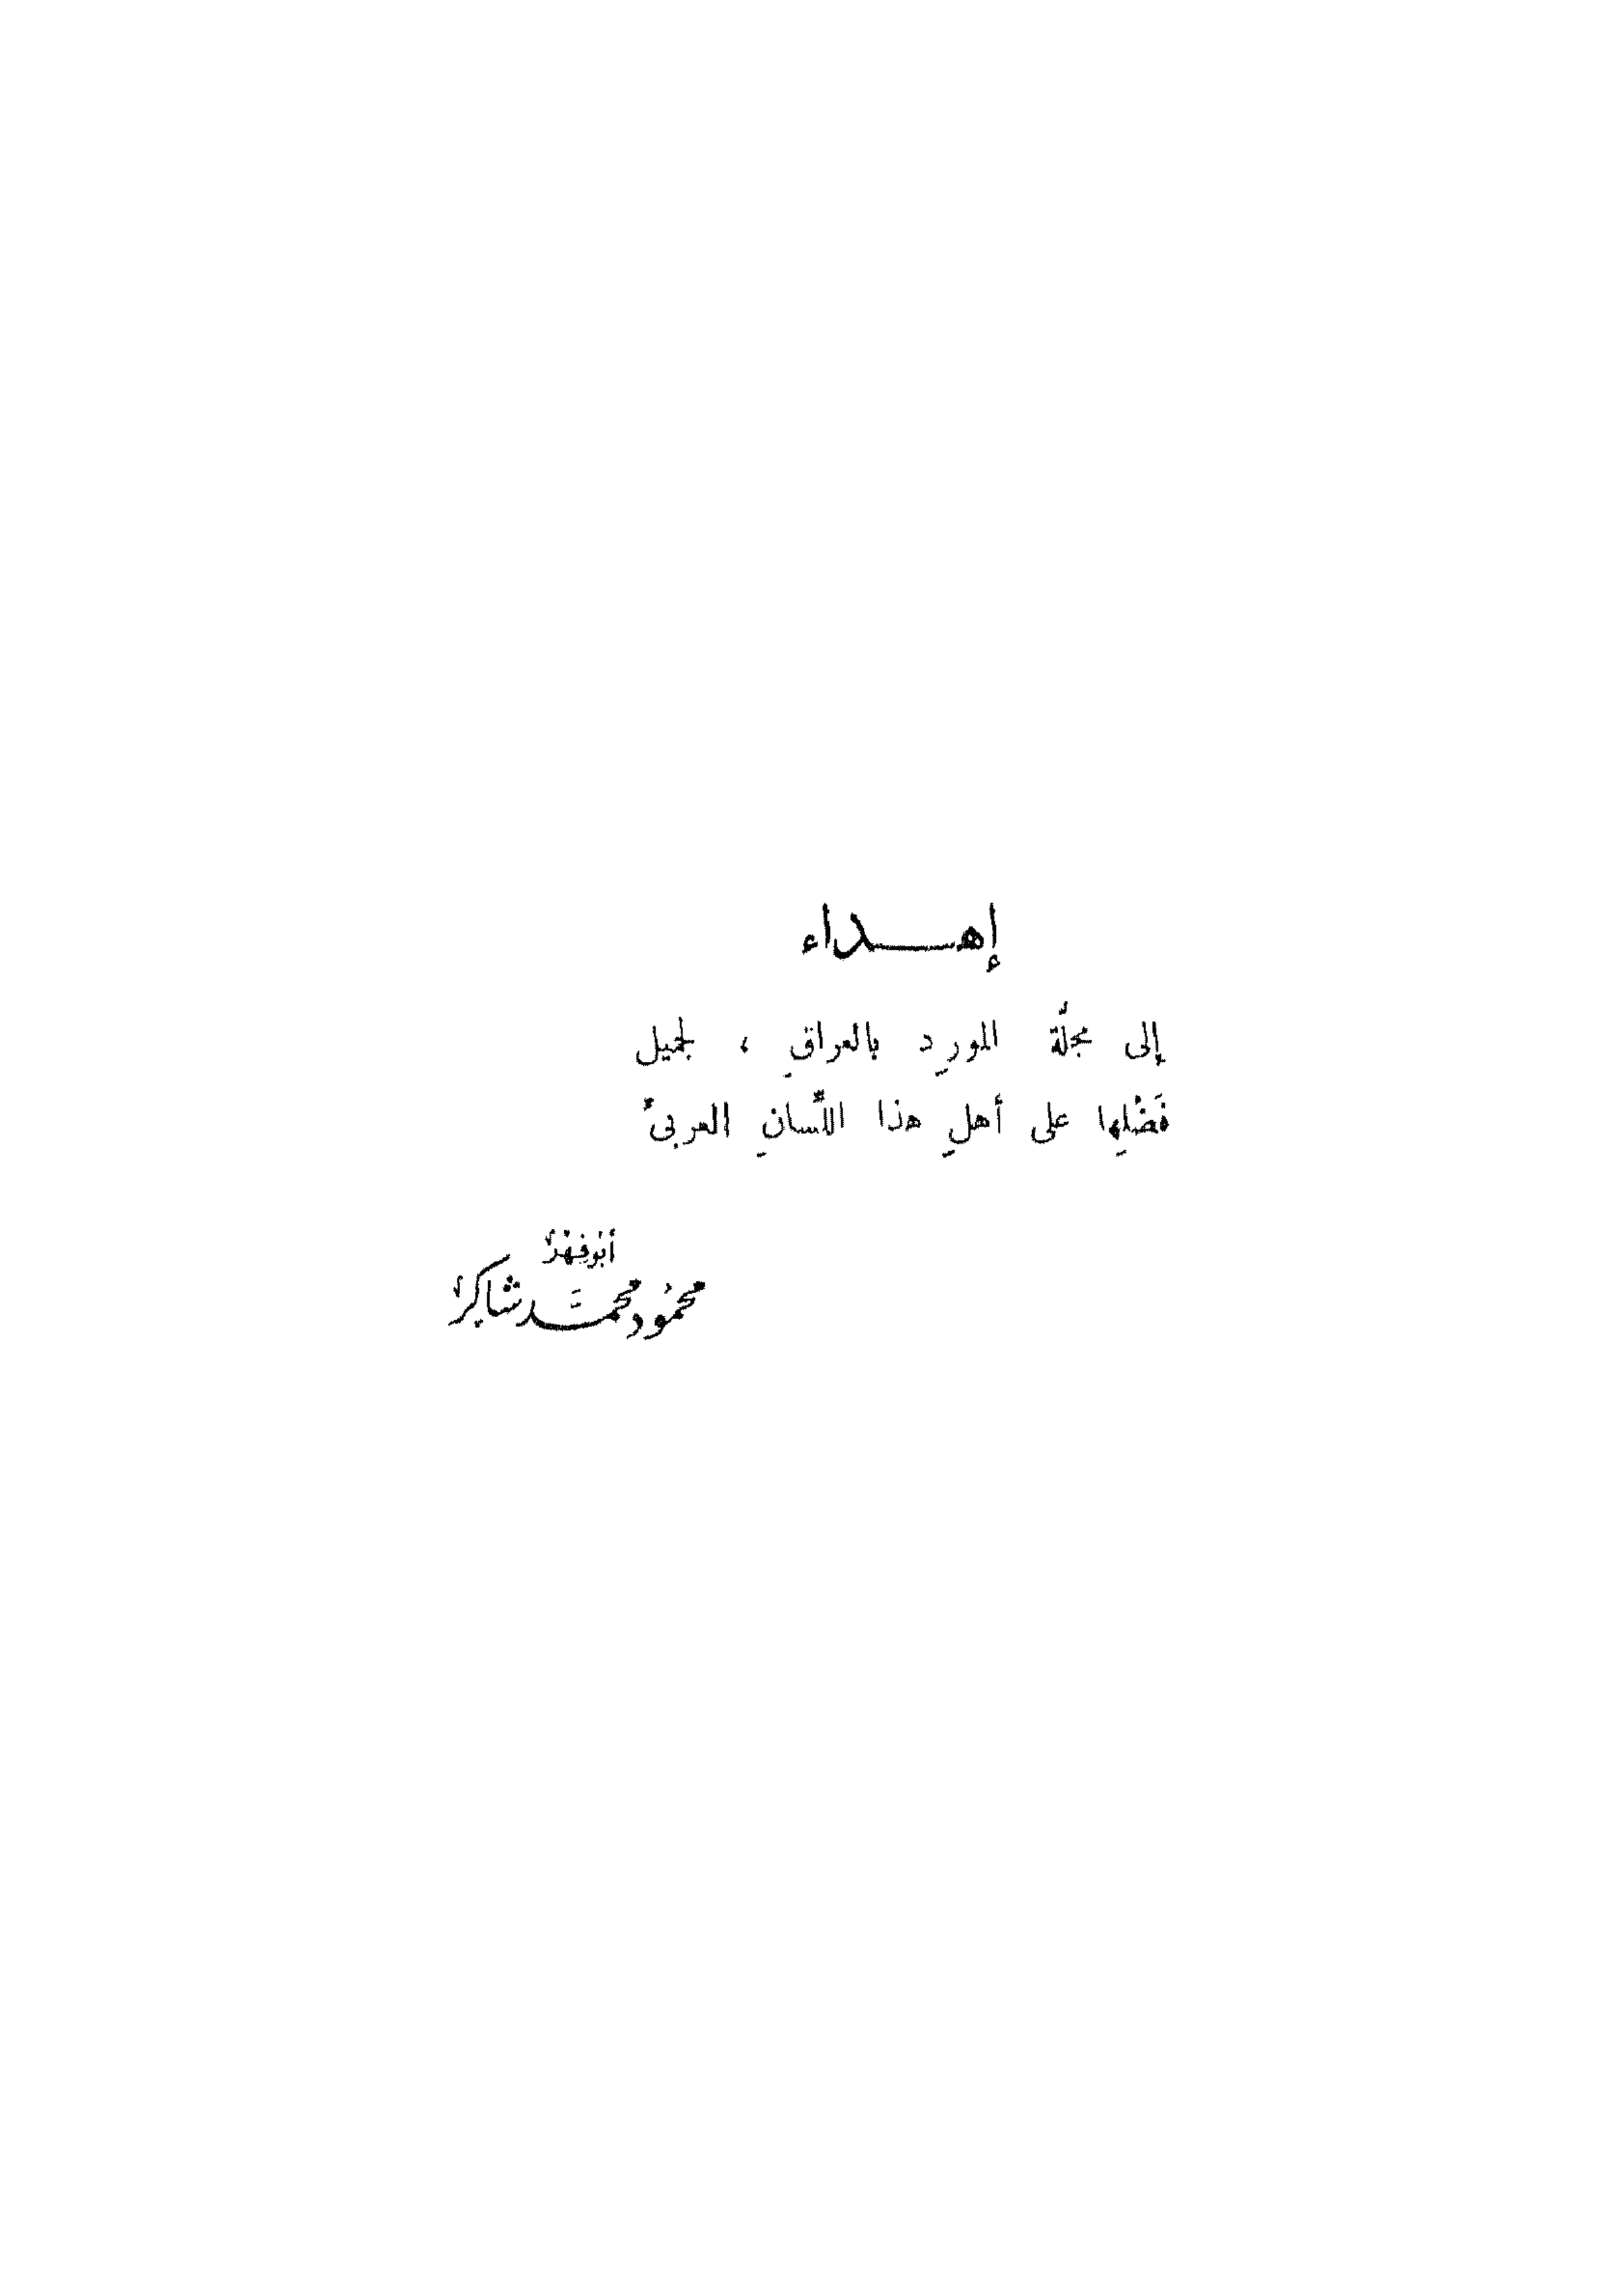 إهـــداء
إلى مجلَّة المورِد بالعراقِ ، لجميل
فَضْلِها على أهلِ هذا اللِّسانِ العربىّ
أبُو فِهْرٍ
محمُود محمَّد شاكِر